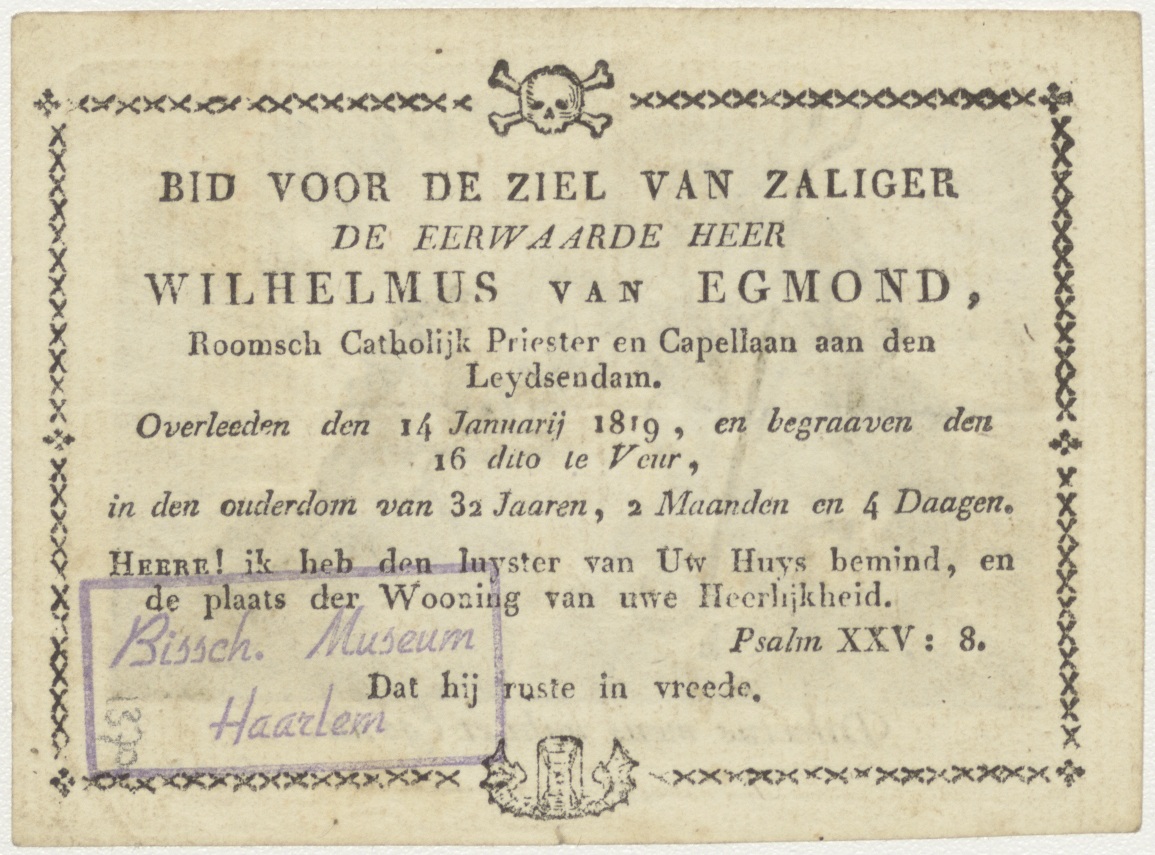 BID VOOR DE ZIEL VAN ZALIGER
DE EERWAARDE HEER
WILHELMUS VAN EGMOND,
Roomsch Catholijk Priester en Capellaan aan den
Leydsendam.
Overleeden den 14 Januarij 1819, en begraaven den
16 dito te Veur,
in den ouderdom van 32 Jaaren, 2 Maanden en 4 Daagen.
HEERE! ik heb den luyster van Uw Huys bemind, en
de plaats der Wooning van uwe Heerlijkheid.
Psalm XXV: 8.
Dat hij ruste in vreede.
Bissch. Museum
Haarlem